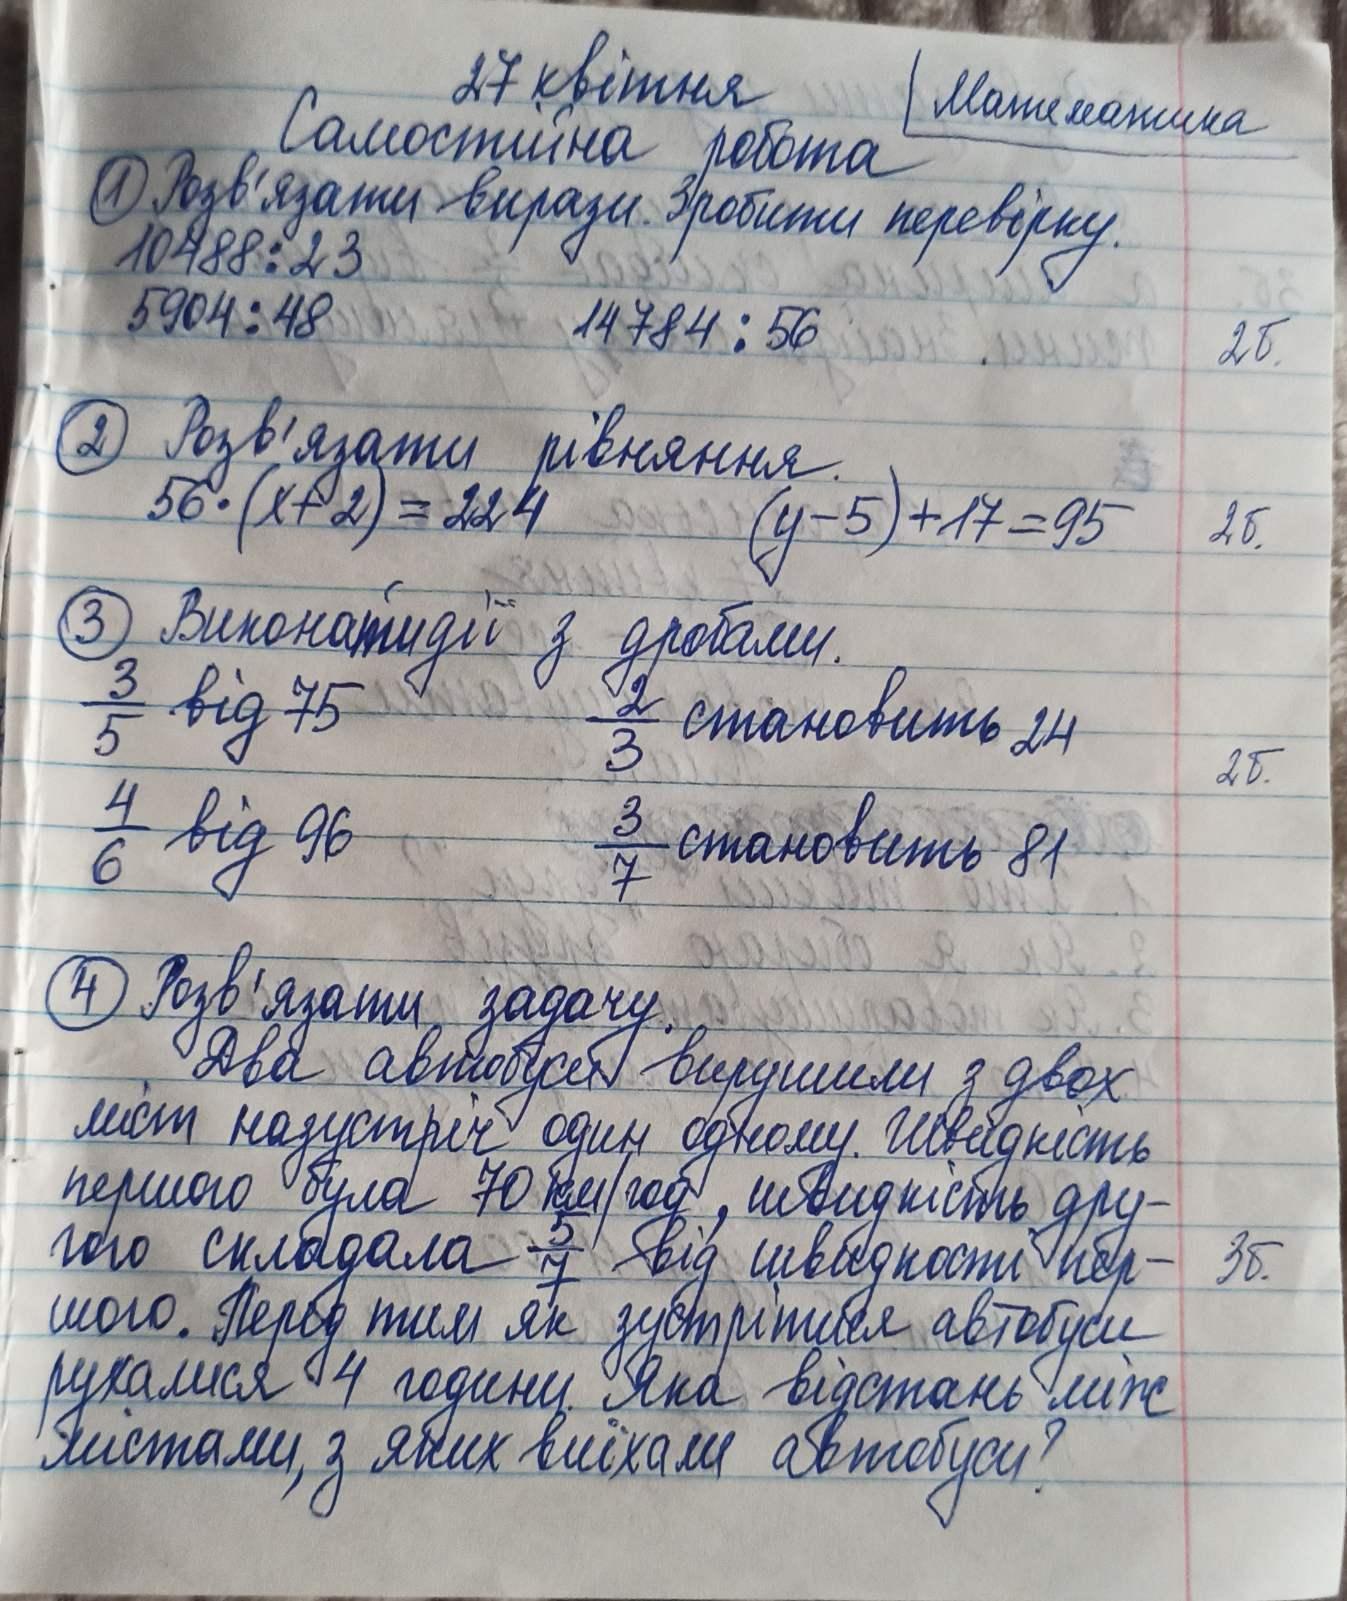 27 квітня
Математика
Самостійна робота
1 Розв'язати вирази. Зробити перевірку.
10488:23
5904:48 14784:56 2б.
2 Розв'язати рівняння.
56·(x+2)=224 (y-5)+17=95 2б.
3 Виконати дії з дробами.
3/5 від 75 2/3 становить 24
2б.
4/6 від 96 3/7 становить 81
4 Розв'язати задачу.
Два автобуси вирушили з двох
міст назустріч один одному. Швидкість
першого була 70 км/год, швидкість дру-
гого складала 5/7 від швидкости пер- 3б.
шого. Перед тим як зустрітися автобуси
рухалися 4 години. Яка відстань між
містами, з яких виїхали автобуси?